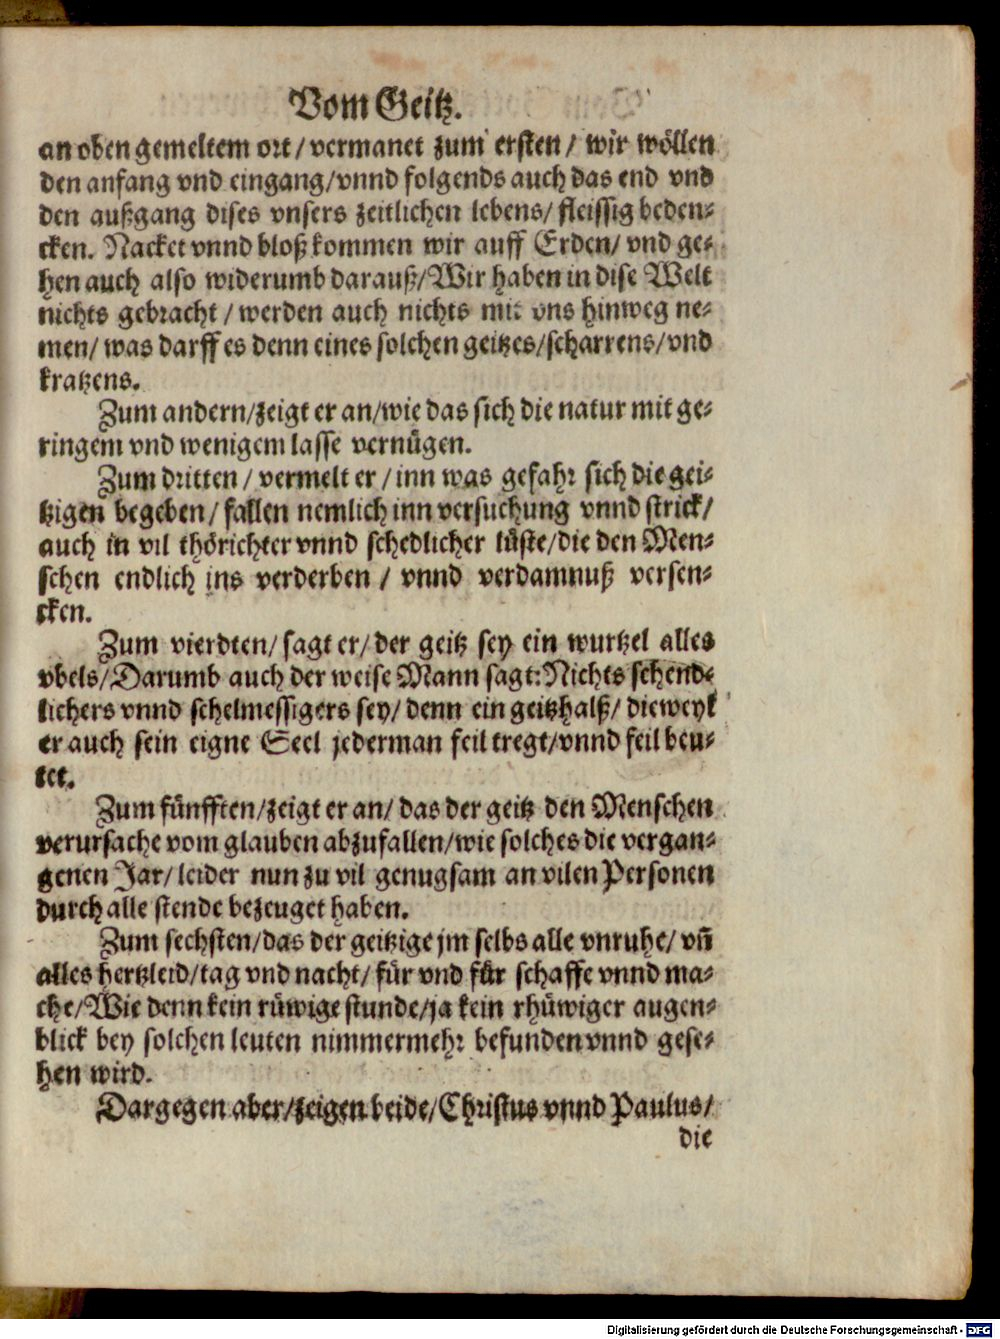 Vom Geitz.
an oben gemeltem ort / vermanet zum ersten / wir wöllen
den anfang vnd eingang / vnnd folgends auch das end vnd
den außgang dises vnsers zeitlichen lebens / fleissig beden-
cken. Nacket vnnd bloß kommen wir auff Erden / vnd ge-
hen auch also widerumb darauß / Wir haben in dise Welt
nichts gebracht / werden auch nichts mit vns hinweg ne-
men / was darff es denn eines solchen geitzes / scharrens / vnd
kratzens.
Zum andern / zeigt er an / wie das sich die natur mit ge-
ringem vnd wenigem lasse vernügen.
Zum dritten / vermelt er / inn was gefahr sich die gei-
tzigen begeben / fallen nemlich inn versuchung vnnd strick /
auch in vil thörichter vnnd schedlicher lüste / die den Men-
schen endlich ins verderben / vnnd verdamnuß versen-
cken.
Zum vierdten / sagt er / der geitz sey ein wurtzel alles
vbels / Darumb auch der weise Mann sagt: Nichts schend-
lichers vnnd schelmessigers sey / denn ein geitzhalß / dieweyl
er auch sein eigne Seel jederman feil tregt / vnnd feil beu-
tet.
Zum fünfften / zeigt er an / das der geitz den Menschen
verursache vom glauben abzufallen / wie solches die vergan-
genen Jar / leider nun zu vil genugsam an vilen Personen
durch alle stende bezeuget haben.
Zum sechsten / das der geitzige jm selbs alle vnruhe / vñ
alles hertzleid / tag vnd nacht / für vnd für schaffe vnnd ma-
che / Wie denn kein rüwige stunde / ja kein rhüwiger augen-
blick bey solchen leuten nimmermehr befunden vnnd gese-
hen wird.
Dargegen aber / zeigen beide / Christus vnnd Paulus /
die
Digitalisierung gefördert durch die Deutsche Forschungsgemeinschaft - DFG